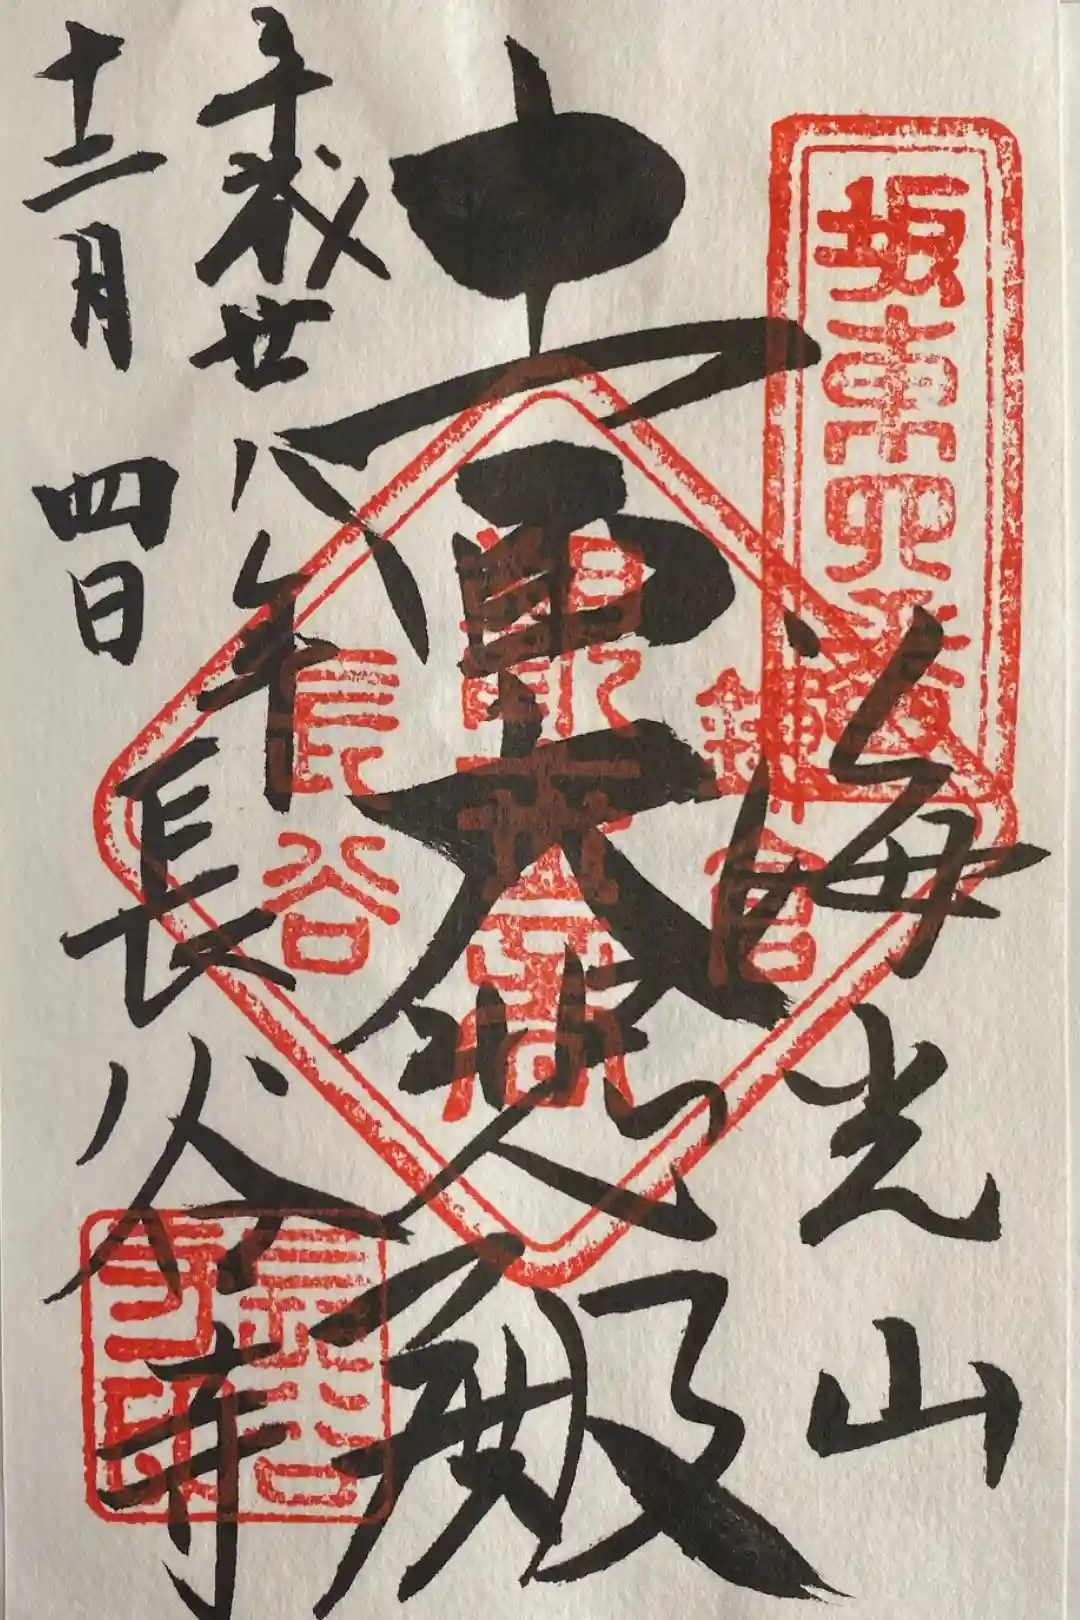 坂東四番
海光山
十一面大悲殿
鎌倉
長谷
平成廿八年
十二月四日
長谷寺
長谷寺印